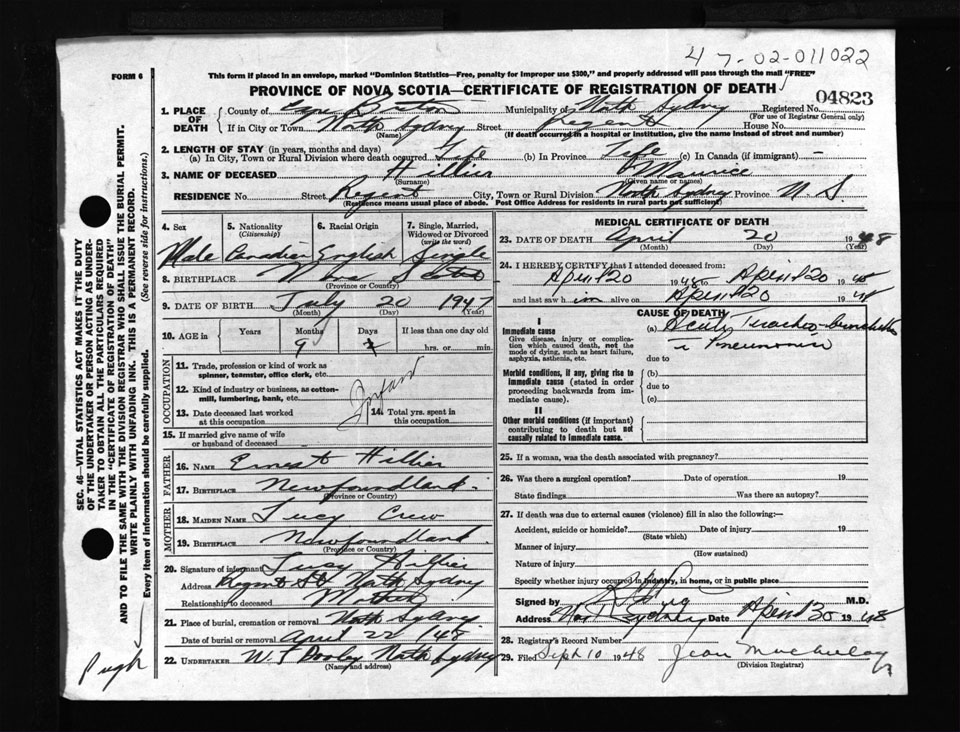 47-02-011022
FORM 6
This form if placed in an envelope, marked "Dominion Statistics—Free, penalty for improper use $300," and properly addressed will pass through the mail "FREE"
PROVINCE OF NOVA SCOTIA—CERTIFICATE OF REGISTRATION OF DEATH
04823
1. PLACE OF DEATH
County of Cape Breton Municipality of North Sydney Registered No.
(For use of Registrar General only)
If in City or Town North Sydney Street Regent House No.
(Name) (If death occurred in a hospital or institution, give the name instead of street and number)
2. LENGTH OF STAY (in years, months and days)
(a) In City, Town or Rural Division where death occurred Life (b) In Province Life (c) In Canada (if immigrant) -
3. NAME OF DECEASED Hillier Maurice
(Surname) (Given name or names)
RESIDENCE No. Street Regent City, Town or Rural Division North Sydney Province N.S.
(Residence means usual place of abode. Post Office Address for residents in rural parts not sufficient)
4. Sex
Male
5. Nationality
(Citizenship)
Canadian
6. Racial Origin
English
7. Single, Married,
Widowed or Divorced
(write the word)
Single
8. BIRTHPLACE Nova Scotia
(Province or Country)
9. DATE OF BIRTH July 20 1947
(Month) (Day) (Year)
10. AGE in
Years Months Days If less than one day
9 hrs. or min.
OCCUPATION
11. Trade, profession or kind of work as
spinner, teamster, office clerk, etc.
12. Kind of industry or business, as cotton-
mill, lumbering, bank, etc.
Infant
13. Date deceased last worked
at this occupation
14. Total yrs. spent in
this occupation
15. If married give name of wife
or husband of deceased
FATHER
16. NAME Ernest Hillier
17. BIRTHPLACE Newfoundland.
(Province or Country)
MOTHER
18. MAIDEN NAME Lucy Crew
19. BIRTHPLACE Newfoundland.
(Province or Country)
20. Signature of informant Lucy Hillier
Address Regent St North Sydney
Relationship to deceased Mother
21. Place of burial, cremation or removal North Sydney
Date of burial or removal April 22 1948
22. UNDERTAKER W. F Dooley North Sydney
(Name and address)
MEDICAL CERTIFICATE OF DEATH
23. DATE OF DEATH April 20 1948
(Month) (Day) (Year)
24. I HEREBY CERTIFY that I attended deceased from:
April 20 1948 to April 20 1948
and last saw him alive on April 20 1948
CAUSE OF DEATH
I
Immediate cause
Give disease, injury or compli-
cation which caused death, not the
mode of dying, such as heart failure,
asphyxia, asthenia, etc.
(a) Acute Tracheo-bronchitis
Pneumonia
due to
Morbid conditions, if any, giving rise to
immediate cause (stated in order
proceeding backwards from im-
mediate cause).
(b)
due to
(c)
II
Other morbid conditions (if important)
contributing to death but not
causally related to immediate cause.
25. If a woman, was the death associated with pregnancy?
26. Was there a surgical operation? Date of operation 19
State findings Was there an autopsy?
27. If death was due to external causes (violence) fill in also the following:—
Accident, suicide or homicide? Date of injury 19
(State which)
Manner of injury
(How sustained)
Nature of injury
Specify whether injury occurred in industry, in home, or in public place
Signed by M.D.
Address Nor Sydney Date April 30 1948
28. Registrar's Record Number
29. Filed Sept 10 1948 Jean MacAulay
(Division Registrar)
SEC. 46—VITAL STATISTICS ACT MAKES IT THE DUTY
OF THE UNDERTAKER OR PERSON ACTING AS UNDER-
TAKER TO OBTAIN ALL THE PARTICULARS REQUIRED
IN THE "CERTIFICATE OF REGISTRATION OF DEATH"
AND TO FILE THE SAME WITH THE DIVISION REGISTRAR WHO SHALL ISSUE THE BURIAL PERMIT.
WRITE PLAINLY WITH UNFADING INK. THIS IS A PERMANENT RECORD.
Every item of information should be carefully supplied. (See reverse side for instructions.)
Pugh